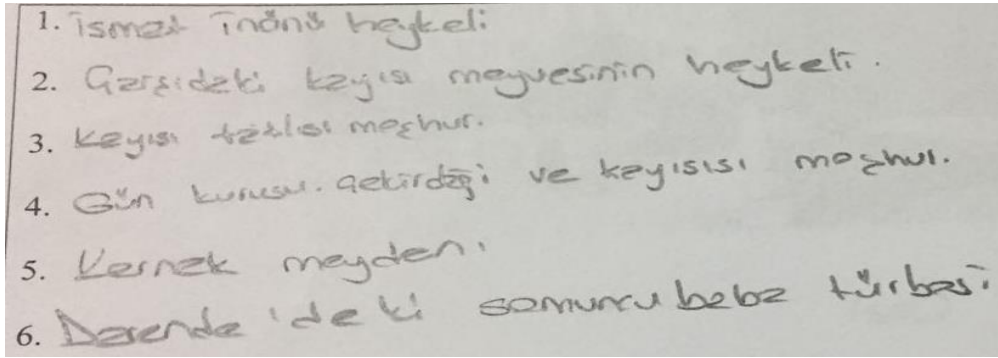 1. İsmet İnönü heykeli
2. Çarşıdaki kayısı meyvesinin heykeli.
3. Kayısı tatlısı meşhur.
4. Gün kurusu. çekirdeği ve kayısısı meşhur.
5. Kernek meydanı
6. Darende'deki somuncu baba türbesi